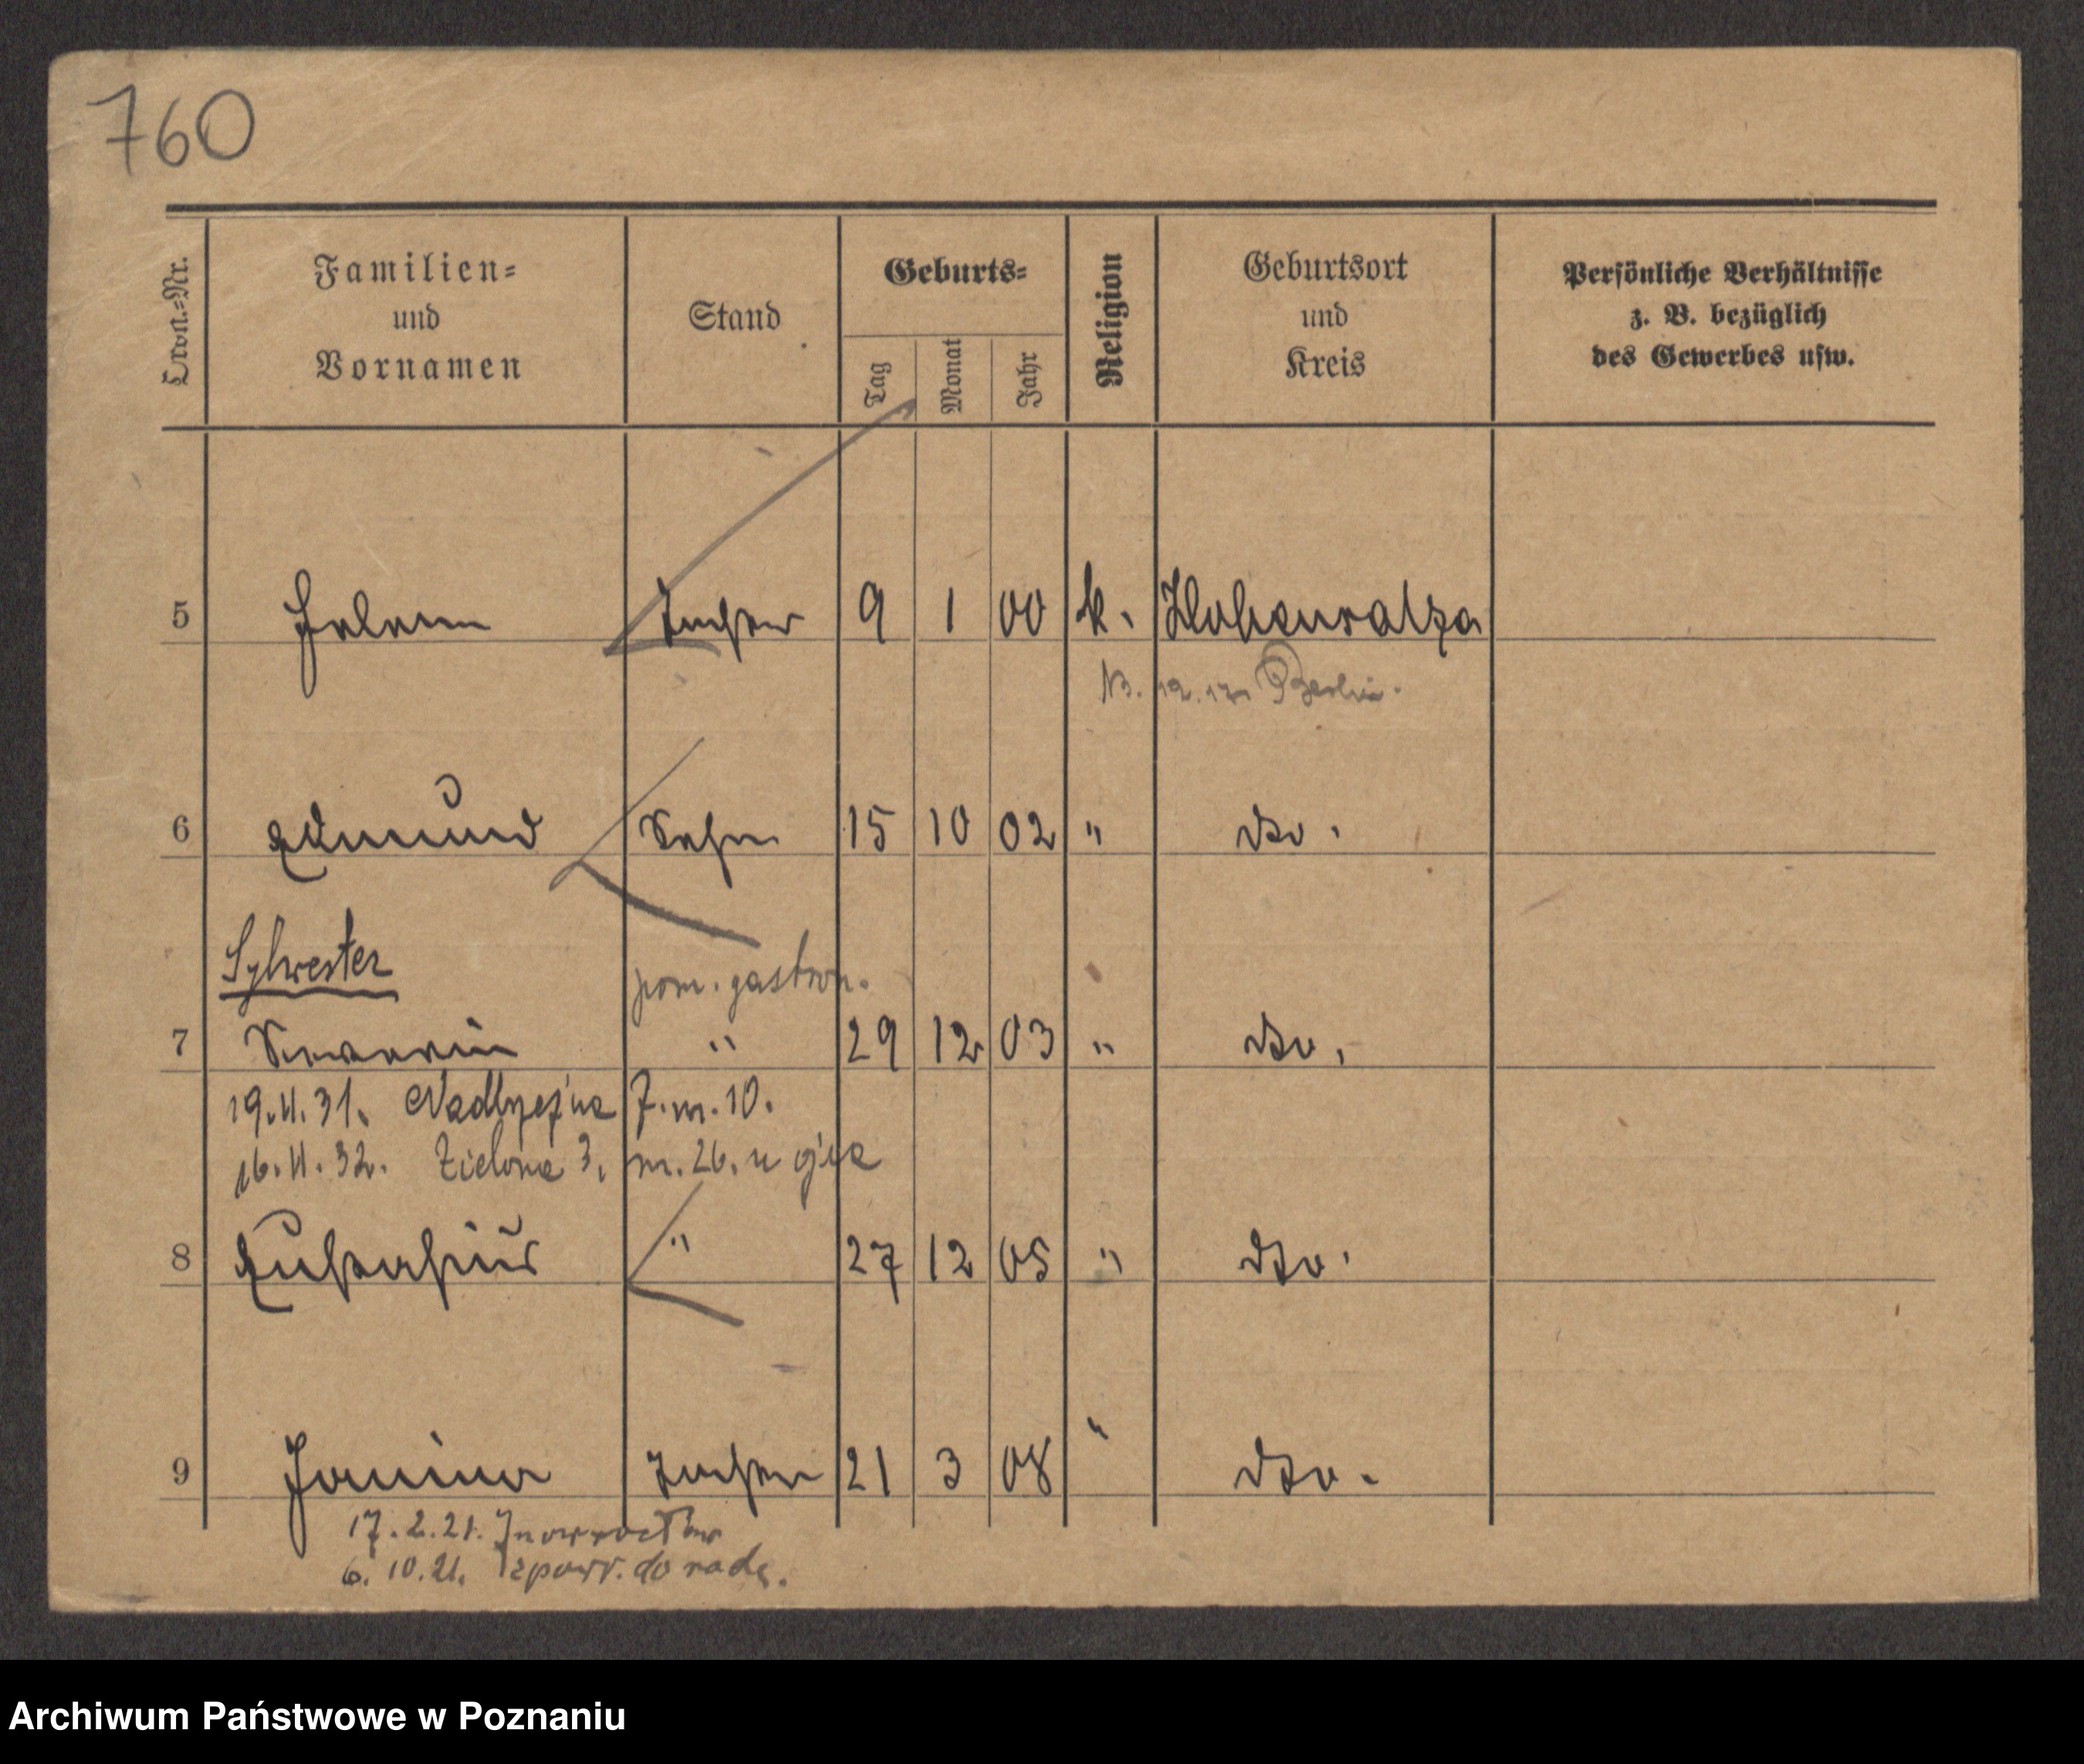 760
Lwd.-Nr.
Familien-
und
Vornamen
Stand
Geburts-
Tag
Monat
Jahr
Religion
Geburtsort
und
Kreis
Persönliche Verhältnisse
z. B. bezüglich
des Gewerbes usw.
5 Tochter 9 1 00 k. Hohensalza
12. Berlin.
6 Edmund Sohn 15 10 02 " dto.
Sylwester pom. gastron.
7 " 29 12 03 " dto.
19.11.31. Nadbrzeżna 7. m. 10.
16.11.32. Zielona 3, m. 26. u ojca
8 Eustachius " 27 12 05 " dto.
9 Janina Tochter 21 3 08 " dto.
17.2.21. Inowrocław
6.10.21. zpowr. do rodz.
Archiwum Państwowe w Poznaniu